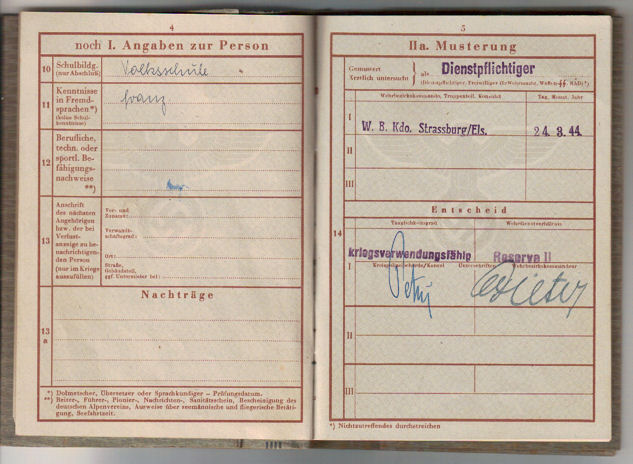 4
noch I. Angaben zur Person
10 Schulbildg. (nur Abschluß) Volksschule
11 Kenntnisse in Fremdsprachen *) (keine Schulkenntnisse) franz
12 Berufliche, techn. oder sportl. Befähigungsnachweise **)
13 Anschrift des nächsten Angehörigen bzw. der bei Verlustanzeige zu benachrichtigenden Person (nur im Kriege auszufüllen)
Vor- und Zuname:
Verwandtschaftsgrad:
Ort:
Straße, Gebäudeteil, ggf. Untermieter bei:
Nachträge
13 a
*) Dolmetscher, Übersetzer oder Sprachkundiger – Prüfungsdatum.
**) Reiter-, Führer-, Pionier-, Nachrichten-, Sanitätsschein, Bescheinigung des
deutschen Alpenvereins, Ausweise über seemännische und fliegerische Betäti-
gung, Seefahrtzeit.
5
IIa. Musterung
Gemustert
Ärztlich untersucht } als Dienstpflichtiger
(Dienstpflichtiger, Freiwilliger (für Wehrmacht, Waffen-SS, RAD) *)
Wehrbezirkskommando, Truppenteil, Konsulat Tag, Monat, Jahr
I W. B. Kdo. Strassburg/Els. 24. 3. 44.
II
III
Entscheid
Tauglichkeitsgrad Wehrdienstverhältnis
14
kriegsverwendungsfähig Reserve II
I
II
III
*) Nichtzutreffendes durchstreichen